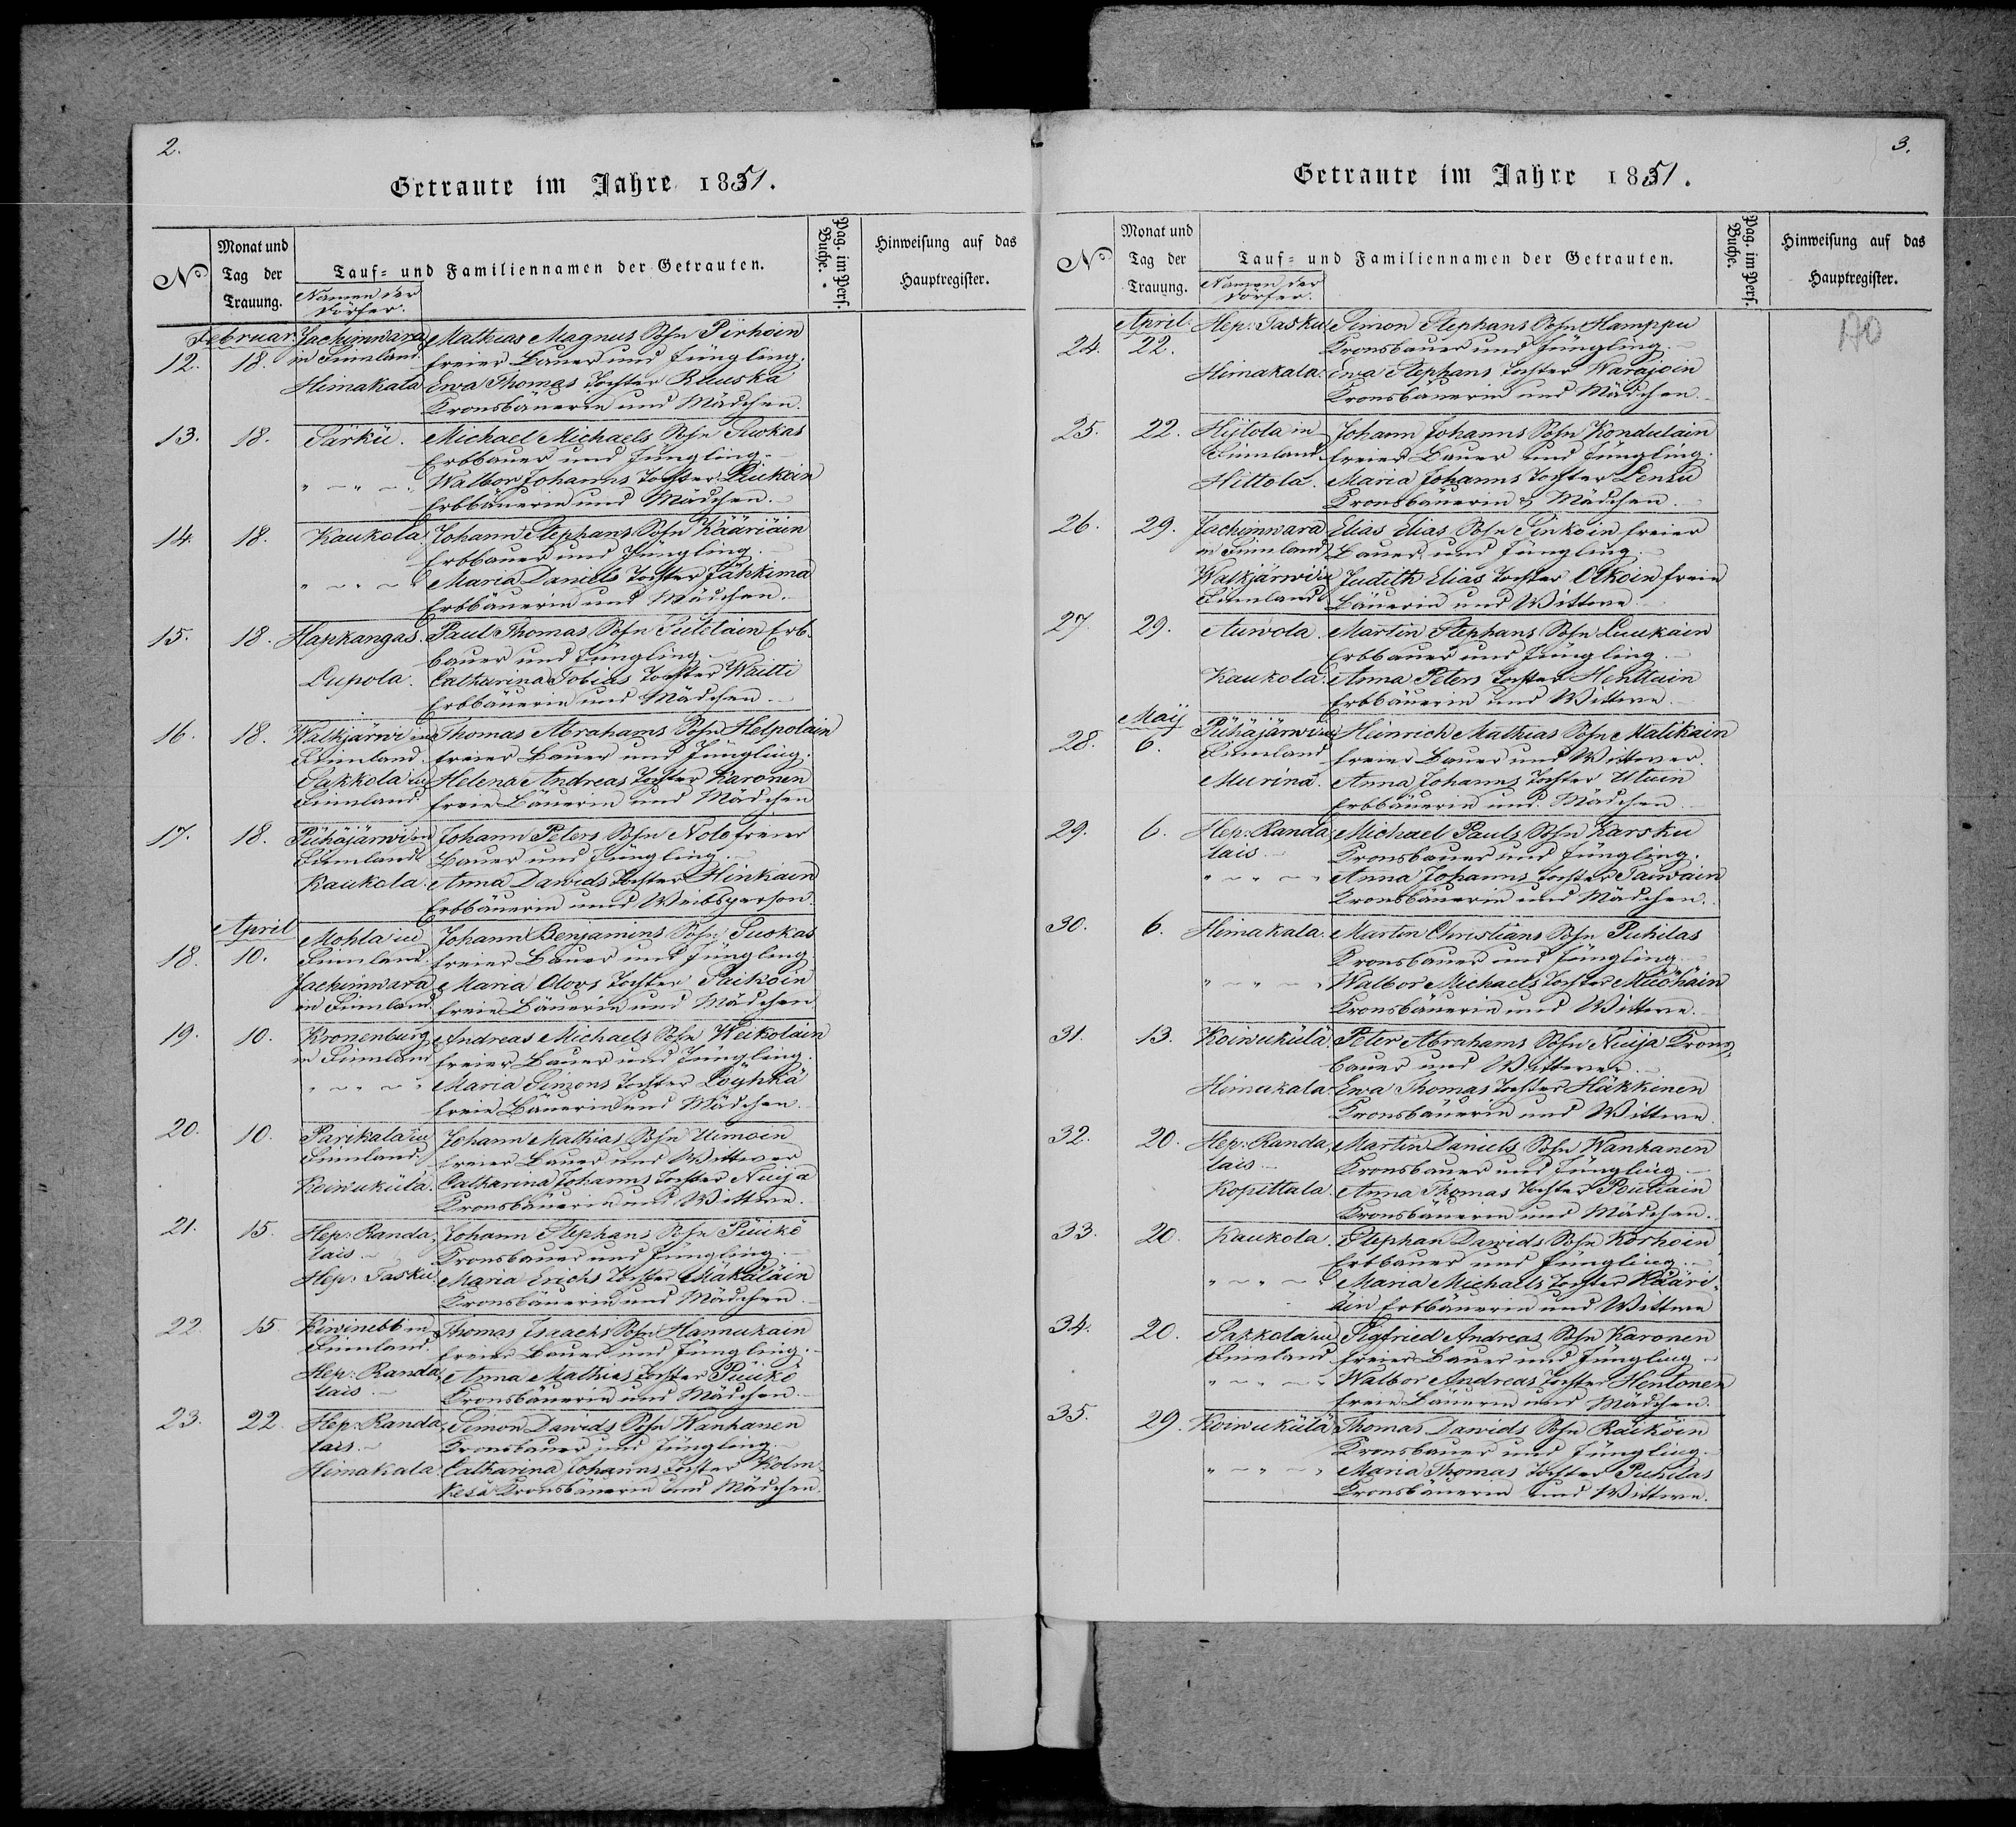 2.
Getraute im Jahre 1851.
No
Monat und Tag der Trauung.
Tauf- und Familiennamen der Getrauten.
Namen der Dörfer.
Pag. im Pers. Buche.
Hinweisung auf das Hauptregister.
Februar. Jachimwara Mathias Magnus Sohn Pirhöin
12. 18. in Finnland. freier Bauer und Jüngling.
Himakala Ewa Thomas Tochter Ruuska
Kronsbäuerin und Mädchen.
13. 18. Tärkü. Michael Michaels Sohn
Erbbauer und Jüngling.
" " Walbor Johanns Tochter
Erbbäuerin und Mädchen.
14. 18. Kaukola. Johann Stephans Sohn Kääriäin
Erbbauer und Jüngling.
" " Maria Daniels Tochter Jähkimä
Erbbäuerin und Mädchen.
15. 18. Hapkangas. Paul Thomas Sohn Erb-
bauer und Jüngling.
Lupola. Catharina Tobias Tochter Waitti
Erbbäuerin und Mädchen.
16. 18. Walkjärwi in Thomas Abrahams Sohn Helpoläin
Finnland. freier Bauer und Jüngling.
Sakkola in Helena Andreas Tochter Karonen
Finnland. freie Bäuerin und Mädchen
17. 18. Pühäjärwi in Johann Peters Sohn freier
Finnland. Bauer und Jüngling.
Kaukola. Anna Dawids Tochter Hinkain
Erbbäuerin und Weibsperson.
April
Mohla in Johann Benjamins Sohn Suokas
18. 10. Finnland. freier Bauer und Jüngling.
Jachimwara Maria Olovs Tochter Paiköin
in Finnland. freie Bäuerin und Mädchen
19. 10. Kronenburg Andreas Michaels Sohn Weikoläin
in Finnland freier Bauer und Jüngling.
" " Maria Simons Tochter Löyhkä
freie Bäuerin und Mädchen.
20. 10. Parikala in Johann Mathias Sohn Uimoin
Finnland. freier Bauer und Wittwer
Koiwukülä. Catharina Johanns Tochter Nuija
Kronsbäuerin und Wittwe.
21. 15. Hep: Randa- Johann Stephans Sohn Püükö
lais. Kronsbauer und Jüngling.
Hep: Tasku. Maria Erichs Tochter Mäkäläin
Kronsbäuerin und Mädchen.
22. 15. Kiwinebb in Thomas Isaacks Sohn Hannukain
Finnland. freier Bauer und Jüngling.
Hep: Randa- Anna Mathias Tochter Püükö
lais. Kronsbäuerin und Mädchen.
23. 22. Hep: Randa- Simon Dawids Sohn Wanhanen
lais. Kronsbauer und Jüngling.
Himakala. Catharina Johanns Tochter Kolm-
kesä Kronsbäuerin und Mädchen.
3.
Getraute im Jahre 1851.
No
Monat und Tag der Trauung.
Tauf- und Familiennamen der Getrauten.
Namen der Dörfer.
Pag. im Pers. Buche.
Hinweisung auf das Hauptregister.
170
April. Hep: Tasku. Simon Stephans Sohn Hamppu
24. 22. Kronsbauer und Jüngling.
Himakala. Ewa Stephans Tochter Warajoin
Kronsbäuerin und Mädchen.
25. 22. Hiitola in Johann Johanns Sohn Kondulain
Finnland freier Bauer und Jüngling.
Hittola. Maria Johanns Tochter Lensu
Kronsbäuerin & Mädchen.
26. 29. Jachimwara Elias Elias Sohn Sinkoin freier
in Finnland Bauer und Jüngling.
Walkjärwi in Judith Elias Tochter Olkoin freie
Finnland Bäuerin und Wittwe.
27. 29. Auwola. Martin Stephans Sohn Luukain
Erbbauer und Jüngling.
Kaukola. Anna Peters Tochter Henttuin
Erbbäuerin und Wittwe.
Maij
28. 6. Pühäjärwi in Heinrich Mathias Sohn Matikain
Finnland freier Bauer und Wittwer.
Murina. Anna Johanns Tochter Utuin
Erbbäuerin und Mädchen.
29. 6. Hep: Randa- Michael Pauls Sohn Karsku
lais. Kronsbauer und Jüngling.
" " Anna Johanns Tochter Taiwain
Kronsbäuerin und Mädchen.
30. 6. Himakala. Martin Christians Sohn Puhilas
Kronsbauer und Jüngling.
" " Walbor Michaels Tochter
Kronsbäuerin und Wittwe.
31. 13. Koiwukülä. Peter Abrahams Sohn Nuija Krons-
bauer und Wittwer.
Himakala. Ewa Thomas Tochter Häkkinen
Kronsbäuerin und Wittwe
32. 20. Hep: Randa- Martin Daniels Sohn Wanhanen
lais. Kronsbauer und Jüngling.
Kopittala. Anna Thomas Tochter Poutiain
Kronsbäuerin und Mädchen.
33. 20. Kaukola. Stephan Dawids Sohn Korhoin
Erbbauer und Jüngling.
" " Maria Michaels Tochter Kääri-
äin Erbbäuerin und Wittwe
34. 20. Sakkola in Sigfried Andreas Sohn Karonen
Finnland freier Bauer und Jüngling
" " Walbor Andreas Tochter Hentonen
freie Bäuerin und Mädchen.
35. 29. Koiwukülä Thomas Dawids Sohn Räiköin
Kronsbauer und Jüngling.
" " Maria Thomas Tochter Puhilas
Kronsbäuerin und Wittwe.